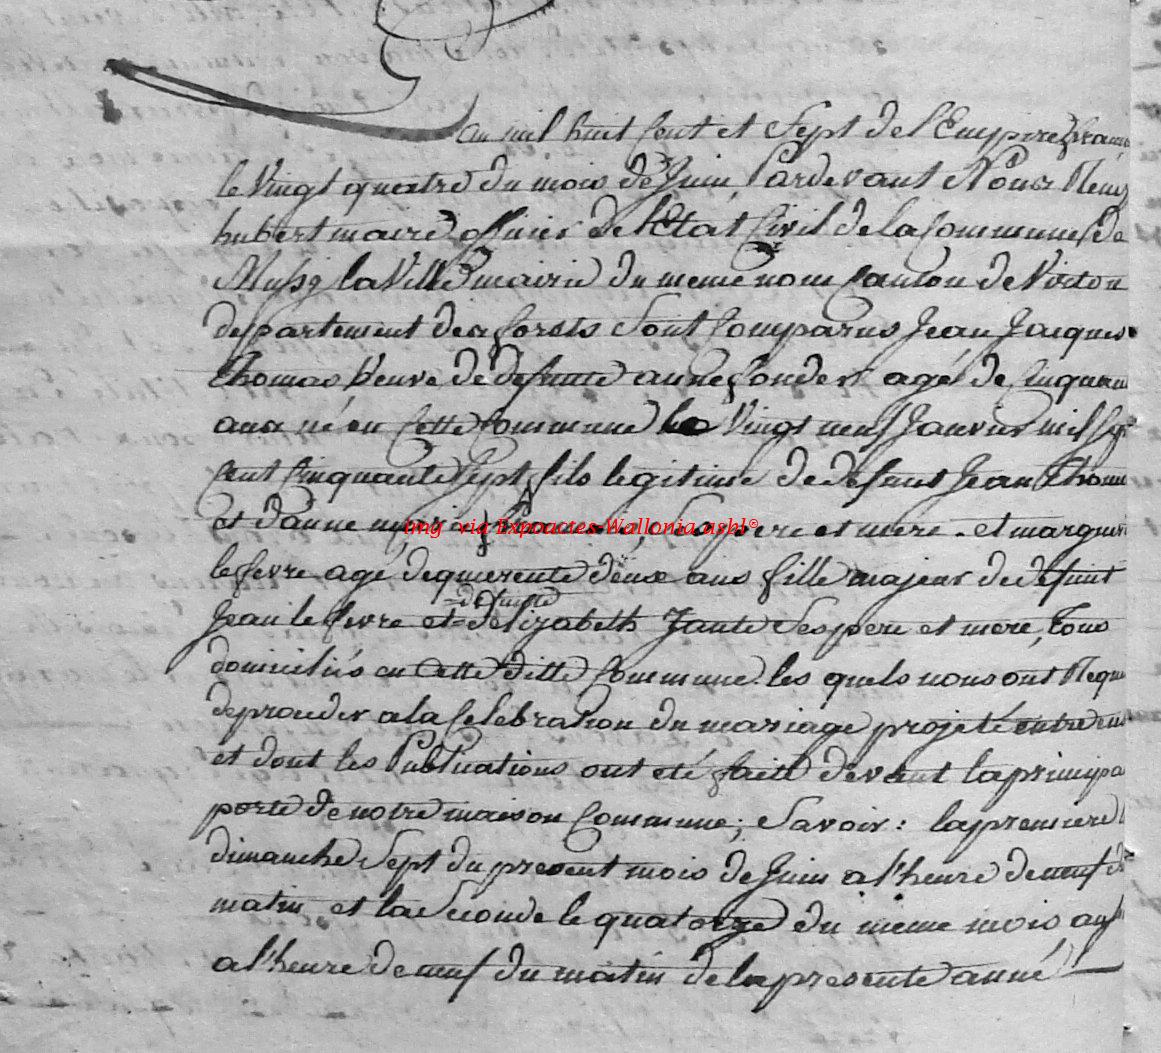 an mil huit Cent et Sept de l'Empire franc
le Vingt quatre du mois de Juin, Pardevant Nous
hubert maire officier de l'Etat Civil de la Commune de
Mussy la Ville mairie du meme nom Canton de Virton
departement des forets Sont Comparus Jean Jacques
Thomas Veuve de defunte anne agé de Cinquan
ans né en Cette Commune le Vingt neuf Janvier mil Sep
Cent Cinquante Sept fils legitime de defunt Jean Thom
et d'anne marie Ses pere et mere. et margueri
img via Expoactes-Wallonia.asbl®
le fevre agé de querente deux ans fille majeur de defunt
defunte
Jean le fevre et d'Elizabeth Ses pere et mere, Tous
domiciliés en Cette ditte Commune. les quels nous ont Requ
de proceder a la Celebration du mariage projeté entre eux
et dont les Publications ont eté faitte devant la principa
porte de notre maison Commune; Savoir: la premiere
dimanche Sept du present mois de Juin a l'heure de neuf du
matin et la Seconde le quatorze du meme mois aussi
a l'heure de neuf du matin de la presente anné